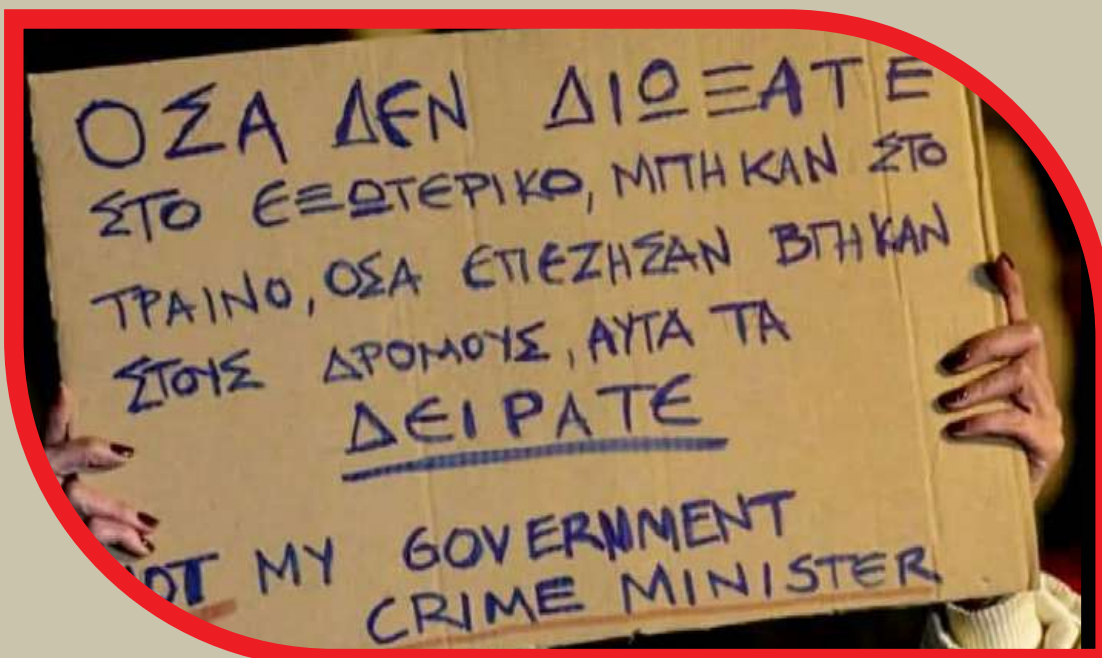 ΟΣΑ ΔΕΝ ΔΙΩΞΑΤΕ
ΣΤΟ ΕΞΩΤΕΡΙΚΟ, ΜΠΗΚΑΝ ΣΤΟ
ΤΡΑΙΝΟ, ΟΣΑ ΕΠΕΖΗΣΑΝ ΒΓΗΚΑΝ
ΣΤΟΥΣ ΔΡΟΜΟΥΣ, ΑΥΤΑ ΤΑ
ΔΕΙΡΑΤΕ
NOT MY GOVERNMENT
CRIME MINISTER